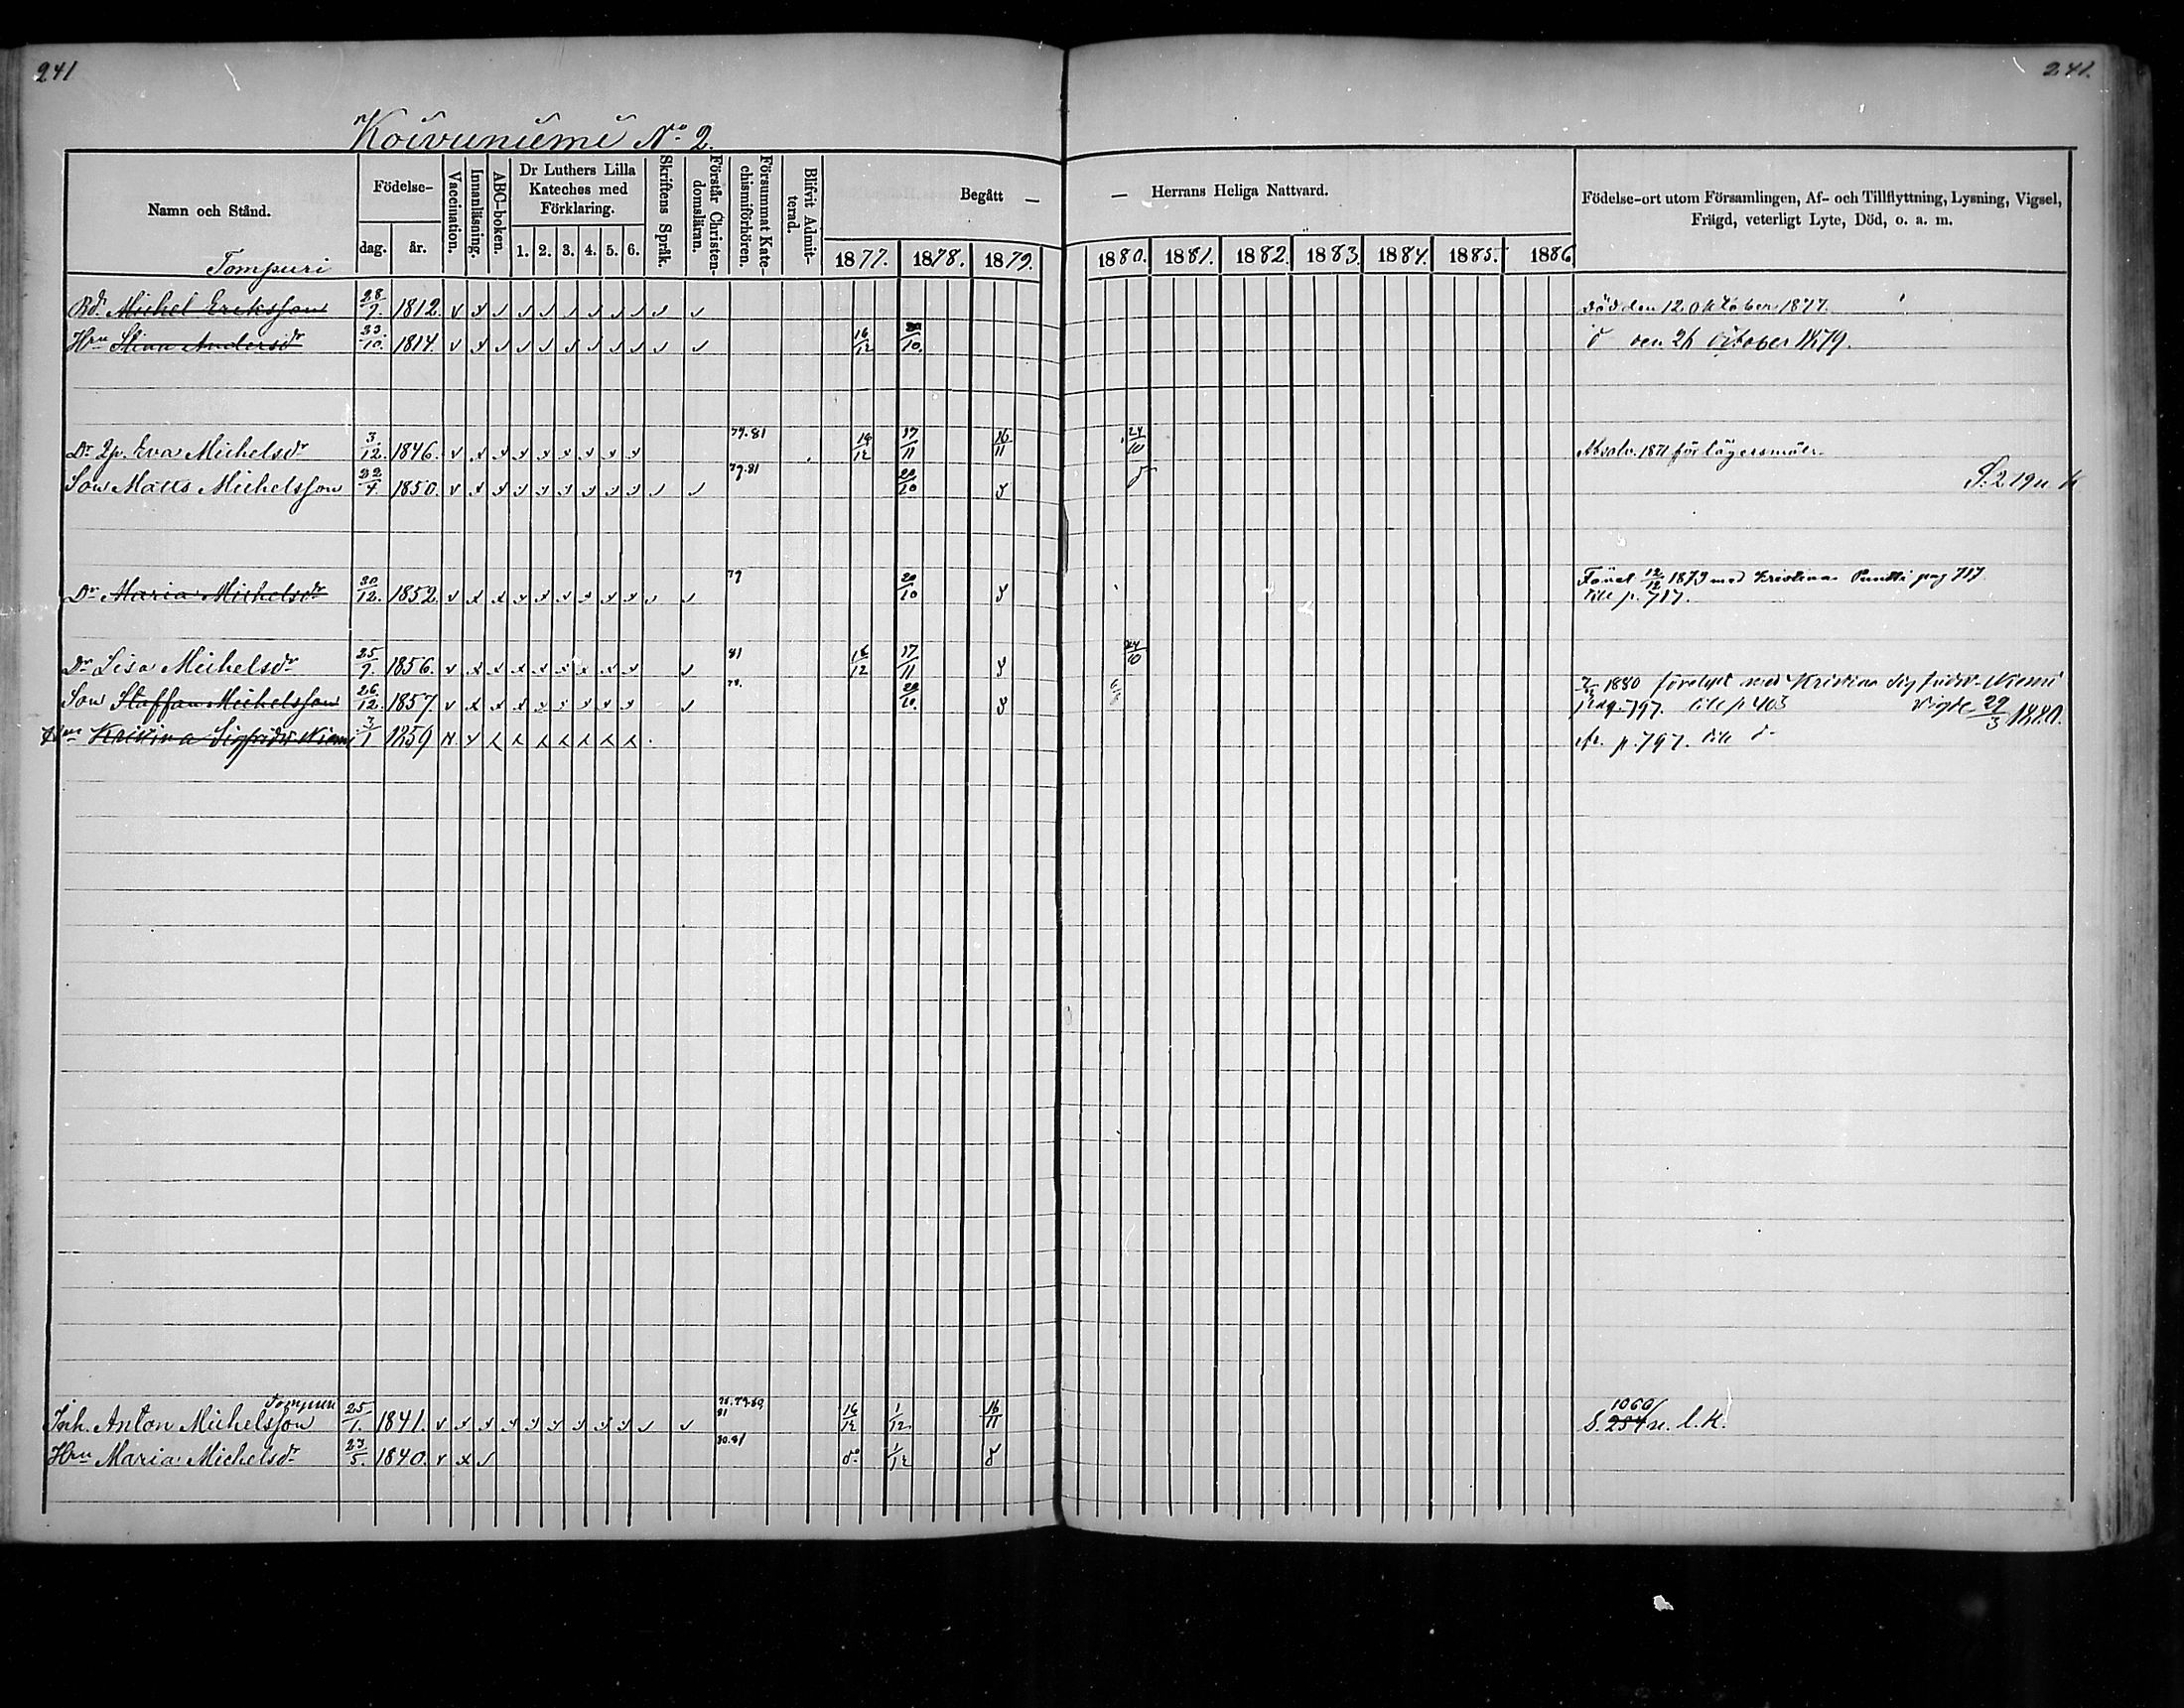 241
241.
Koivuniemi No 2.
Namn och Stånd.
Födelse-
dag.
år.
Vaccination.
Innanläsning.
ABC-boken.
Dr Luthers Lilla
Kateches med
Förklaring.
1. 2. 3. 4. 5. 6.
Skriftens Språk.
Förstår Christen-
domsläran.
Försummat Kate-
chismiförhören.
Blifvit Admit-
terad.
Begått —
— Herrans Heliga Nattvard.
1877. 1878. 1879. 1880. 1881. 1882. 1883. 1884. 1885. 1886
Födelse-ort utom Församlingen, Af- och Tillflyttning, Lysning, Vigsel,
Frägd, veterligt Lyte, Död, o. a. m.
Tompuri
Bd. Michel Eriksson 28/9. 1812. Död den 12 October 1877.
Hru Stina Andersdr 30/10. 1814. 16/12 20/10. den 21 October 1879.
Dr Eva Michelsdr 3/12. 1846. 79.81 16/12 17/11 16/11 24/10 1871 för lägersmål
Son Matts Michelsson 22/4 1850. 79.81 20/10
Dr Maria Michelsdr 30/12. 1852. 79 20/10 12/12 1879 med Kristina pag 717
till p. 717.
Dr Lisa Michelsdr 25/9. 1856. 81 16/12 17/11 24/10
Son Staffan Michelsson 26/12. 1857 79. 20/10. 1880 med Kristina Sigfridsdr Niemi
pag. 797. till p 403 Vigde 29/3 1880.
Hru Kristina Sigfridsdr Niemi 3/1 1859 p. 797. till
Tompuri
Inh. Anton Michelsson 25/1. 1841. 81 16/12 1/12. 16/11 1060/
S. 254 n. l. K.
Hru Maria Michelsdr 23/5. 1840. 80.81 1/12